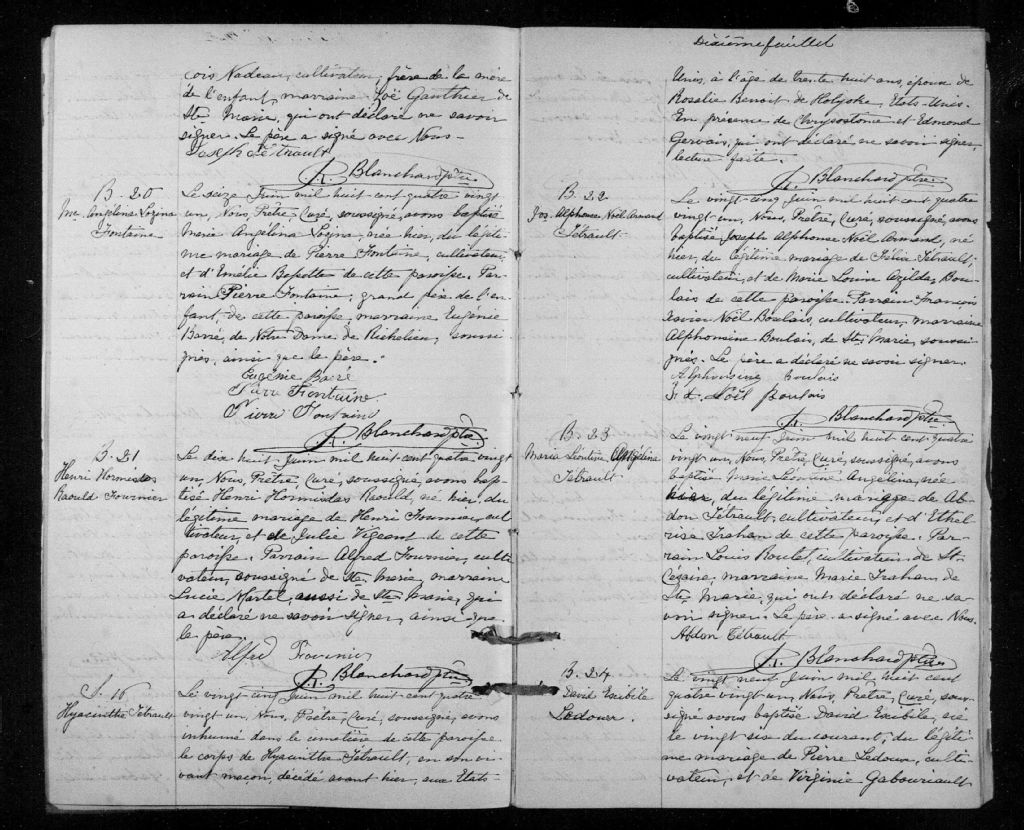 cois Nadeau, cultivateur, frère de la mère
de l'enfant, marraine Zoë Gauthier de
Ste Marie, qui ont déclaré ne savoir
signer. Le père a signé avec Nous.
Joseph Tétrault
A. Blanchard ptre.
B. 20
Mie Angélina Lozina
Fontaine
Le seize Juin mil huit cent quatre vingt
un, Nous, Prêtre, Curé, soussigné, avons baptisé
Marie Angélina Lozina, née hier, du légiti-
me mariage de Pierre Fontaine, cultivateur,
et d'Emélie Bessette de cette paroisse. Par-
rain Pierre Fontaine, grand père de l'en-
fant, de cette paroisse, marraine Eugénie
Barré, de Notre Dame de Richelieu, soussi-
gnés, ainsi que le père.
Eugénie Barré
Pierre Fontaine
Pierre Fontaine
A. Blanchard ptre.
B. 21
Henri Hormisdas
Raould Fournier
Le dix huit Juin mil huit cent quatre vingt
un, Nous, Prêtre, Curé, soussigné, avons bap-
tisé Henri Hormisdas Raould, né hier, du
légitime mariage de Henri Fournier, cul-
tivateur, et de Julie Vigeant de cette
paroisse. Parrain Alfred Fournier, culti-
vateur, soussigné de Ste Marie, marraine
Lucie Martel, aussi de Ste Marie, qui
a déclaré ne savoir signer, ainsi que
le père.
Alfred Fournier
A. Blanchard ptre
S. 16
Hyacinthe Tétrault
Le vingt cinq Juin mil huit cent quatre
vingt un, Nous, Prêtre, Curé, soussigné, avons
inhumé dans le cimetière de cette paroisse
le corps de Hyacinthe Tétrault, en son vi-
vant maçon, décédé avant hier, aux Etats-
Dixième feuillet
Unis, à l'âge de trente huit ans, époux de
Rosalie Benoit de Holyoke, Etats-Unis.
En présence de Chrysostome et Edmond
Gervais, qui ont déclaré ne savoir signer,
lecture faite.
A. Blanchard ptre.
B. 22
Jos. Alphonse Noël Armand
Tétrault
Le vingt cinq Juin mil huit cent quatre
vingt un, Nous, Prêtre, Curé, soussigné, avons
baptisé Joseph Alphonse Noël Armand, né
hier, du légitime mariage de Tétrault,
cultivateur, et de Marie Louise Azilda Bou-
lais de cette paroisse. Parrain François
Xavier Noël Boulais, cultivateur, marraine
Alphonsine Boulais, de Ste Marie, soussi-
gnés. Le père a déclaré ne savoir signer.
Alphonsine Boulais
F. X. Noël Boulais
A. Blanchard ptre.
B. 23
Maria Léontine Angélina
Tétrault
Le vingt neuf Juin mil huit cent quatre
vingt un, Nous, Prêtre, Curé, soussigné, avons
baptisé Marie Léontine Angélina, née
hier, du légitime mariage de Ab-
don Tétrault, cultivateur, et d'Ethel-
rise Trahan de cette paroisse. Par-
rain Louis Boutet, cultivateur, de St
Césaire, marraine Marie Trahan de
Ste Marie, qui ont déclaré ne sa-
voir signer. Le père a signé avec Nous.
Abdon Tétrault
A. Blanchard ptre
B. 24
David Exibile
Ledoux.
Le vingt neuf Juin mil huit cent
quatre vingt un, Nous, Prêtre, Curé, sous-
signé avons baptisé David Exibile, né
le vingt six du courant, du légiti-
me mariage de Pierre Ledoux, culti-
vateur, et de Virginie Gabouriault